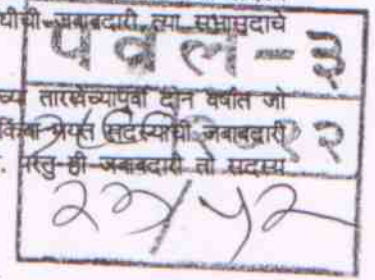 जबाबदारी त्या सभासदाचे
पवल-३
च्या तारखेच्यापूर्वी दोन वर्षात जो
किंवा मयत सदस्याची जबाबदारी
१२
परंतु ही जबाबदारी तो सदस्य
२३/५२